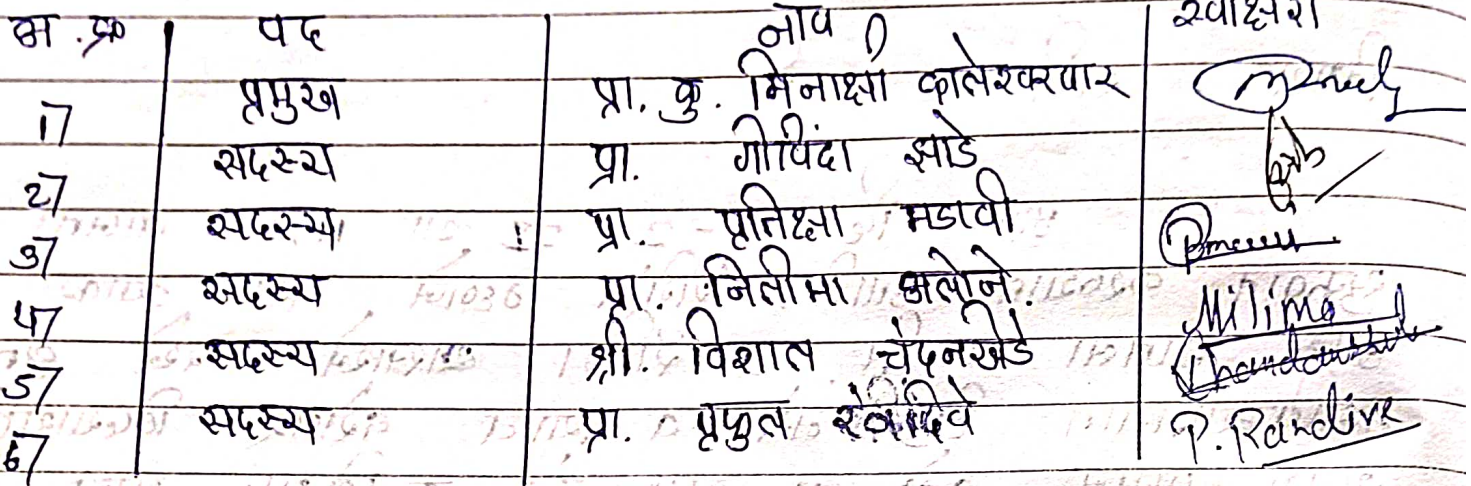 अ.क्र पद नाव स्वाक्षरी
1) प्रमुख प्रा. कु. मिनाक्षी कालेश्वरवार
2) सदस्य प्रा. गोविंदा झाडे
3) सदस्य प्रा. प्रतिक्षा मडावी
4) सदस्य प्रा. नितीमा अलोने. Milima
5) सदस्य श्री. विशाल चंदनखेडे
6) सदस्य प्रा. प्रफुल रणदिवे P. Randive